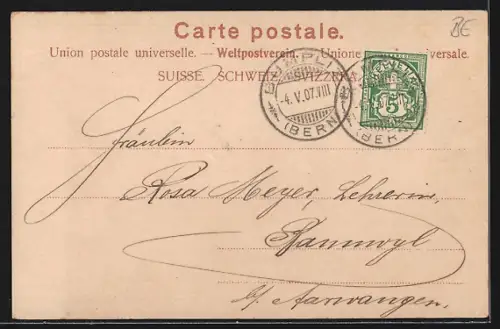 BE
Carte postale.
Union postale universelle. — Weltpostverein. — Unione postale universale.
SUISSE. SCHWEIZ. SVIZZERA.
BÜMPLIZ
-4.V.07.VIII
(BERN)
5
Fräulein
Rosa Meyer, Lehrerin,
Bannwyl
b/ Aarwangen.